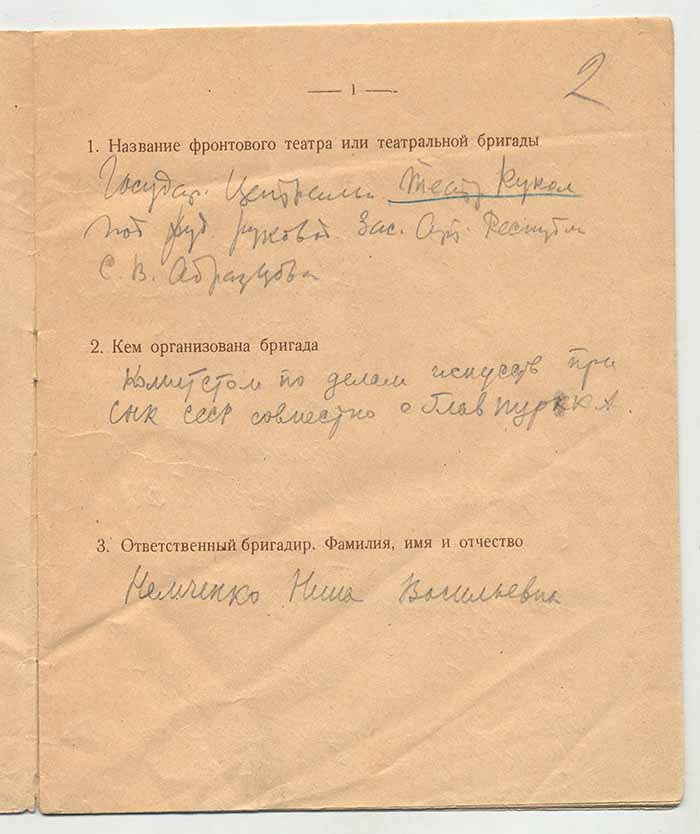 — 1 —
2
1. Название фронтового театра или театральной бригады
Государ. Центральн Театр Кукол
под худ. руковод Зас. Арт. Республ
С. В. Абразцова
2. Кем организована бригада
Комитетом по делам искусств при
СНК СССР совместно с Глав ПУРККА.
3. Ответственный бригадир. Фамилия, имя и отчество
Немченко Нина Васильевна